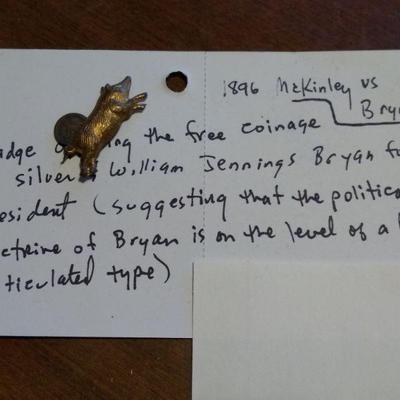 1896 McKinley vs
Brya
adge the free coinage
silver William Jennings Bryan fo
esident (suggesting that the politica
ctrine of Bryan is on the level of a
ticulated type)